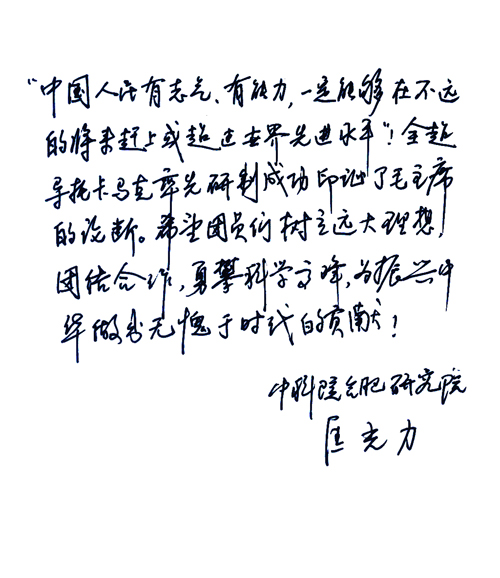 “中国人民有志气、有能力,一定能够在不远
的将来赶上或超过世界先进水平”!全超
导托卡马克率先研制成功印证了毛主席
的论断。希望团员们树立远大理想,
团结合作,勇攀科学高峰,为振兴中
华做出无愧于时代的贡献!
中科院合肥研究院
匡光力